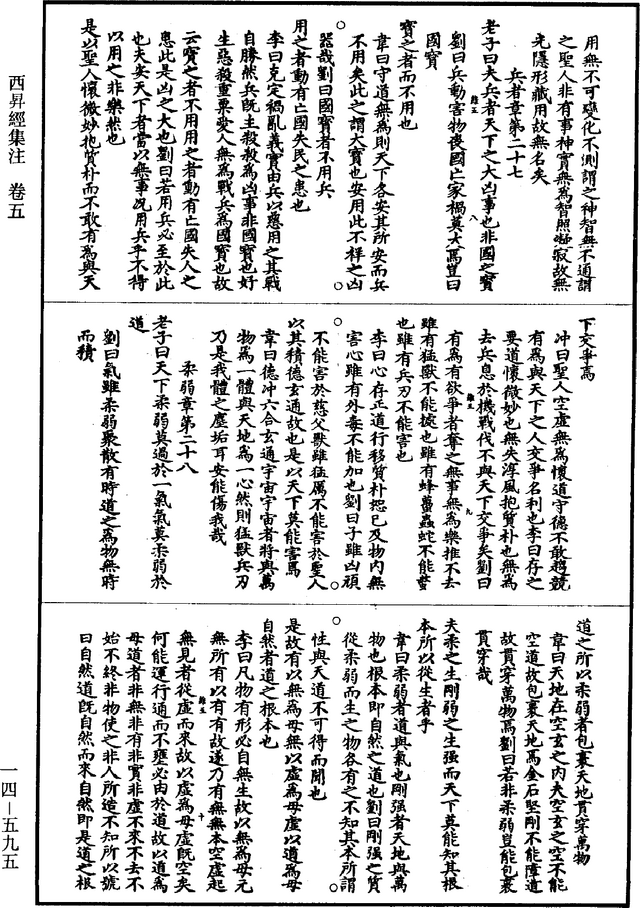 用無不可變化不測謂之神智無不通謂
之聖人非有事神實無爲智照唯寂故無
光隱形藏用故無名矣
兵者章第二十七
老子曰夫兵者天下之大凶事也非國之寶
劉曰兵動害物喪國亡家禍莫大焉豈曰
國寶
寶之者而不用也
韋曰守道無爲則天下各安其所安而兵
不用矣此之謂大寶也安用此不祥之凶
器哉劉曰國寶者不用兵
用之者動有亡國失民之患也
李曰克定禍亂義實由兵以慈用之其戰
自勝然兵旣主殺殺爲凶事非國寶也好
生惡殺重愛人無爲戰兵爲國寶也故
云寶之者不用用之者動有亡國失人之
患此是凶之大也劉曰若用兵必至於此
也夫安天下者當以無事況用兵乎不得
以用之非樂然也
是以聖人懷微妙抱質朴而不敢有爲與天
下交爭焉
冲曰聖人空虛無爲懷道守德不敢趨競
有爲與天下之人交爭名利也李曰存之
要道懷微妙也無失淳風抱質朴也無爲
去兵息於機戰伐不與天下交爭矣劉曰
有爲有欲爭者奪之無事無爲樂推不去
雖有猛獸不能據也雖有蜂蠆蟲蛇不能螫
也雖有兵刃不能害也
李曰心存正道行移質朴抱己及物內無
害心雖有外毒不能加也劉曰子雖凶頑
不能害於慈父獸雖猛厲不能害於聖人
以其積德玄通故也是以天下莫能害焉
韋曰德冲六合玄通宇宙宇宙者將與萬
物爲一體與天地爲一心然則猛獸兵刃
乃是我體之塵垢耳安能傷我哉
柔弱章第二十八
老子曰天下柔弱莫過於一氣氣莫柔弱於
道
劉曰氣雖柔弱聚散有時道之爲物無時
而積
道之所以柔弱者包裹天地貫穿萬物
韋曰天地在空玄之內夫空玄之空不能
空道故包裹天地焉金石堅剛不能障道
故貫穿萬物焉劉曰若非柔弱豈能包裹
貫穿哉
夫柔之生剛弱之生强而天下莫能知其根
本所以從生者乎
韋曰柔弱者道與氣也剛强者天地與萬
物也根本即自然之道也劉曰剛强之質
從柔弱而生之物各有之不知其本所謂
性與天道不可得而聞也
是故有以無爲母無以虛爲母虛以道爲母
自然者道之根本也
李曰凡物有形必自無生故以無爲母元
無所有以有有故遂乃有無無本空虛起
無見者從虛而來故以虛爲母虛旣空矣
何能運行通而不壅必由於道故以道爲
母道者非無非有非實非虛不來不去不
始不終非物使之非人所造不知所以號
曰自然道旣自然而來自然即是道之根
西昇經集注　卷五
一四—五九五